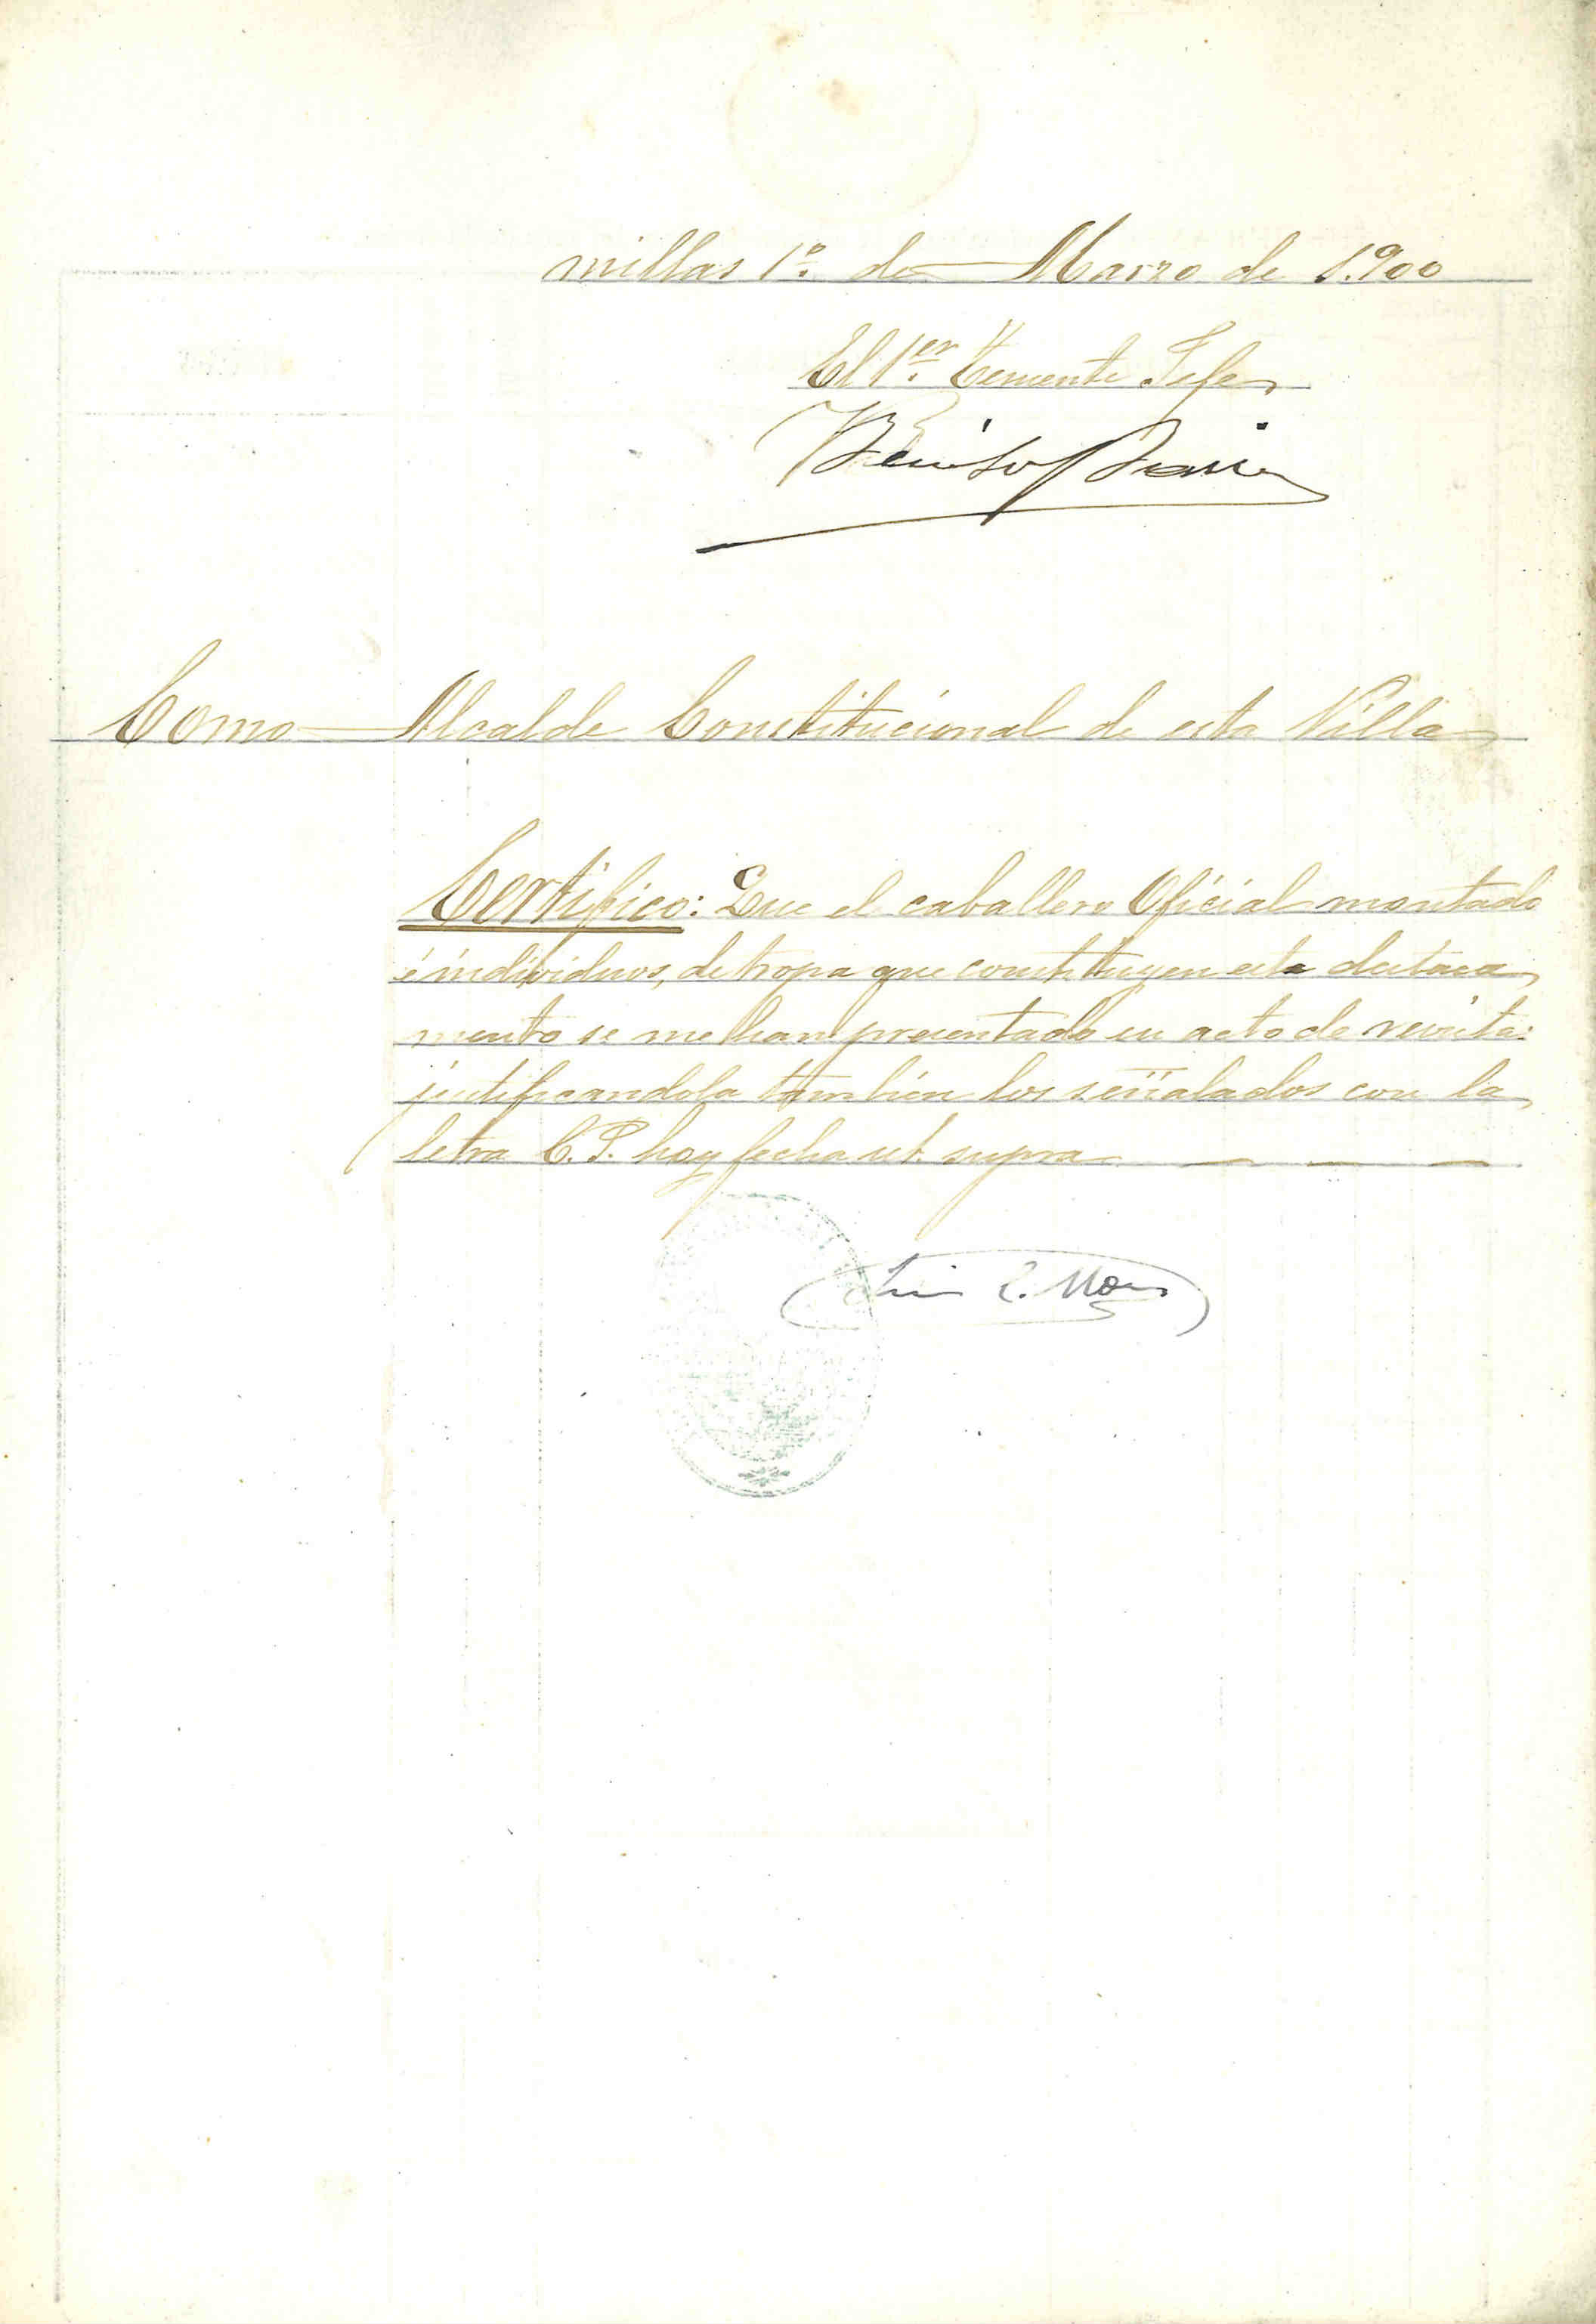 millas 1º de Marzo de 1.900
El 1er Teniente Jefe
Benito
Como Alcalde Constitucional de esta Villa
Certifico: Que el caballero Oficial montado
é individuos, de tropa que constituyen este destaca
mento se me han presentado en acto de revista:
justificandola tambien los señalados con la
letra C.P. hoy fecha ut supra
Luis